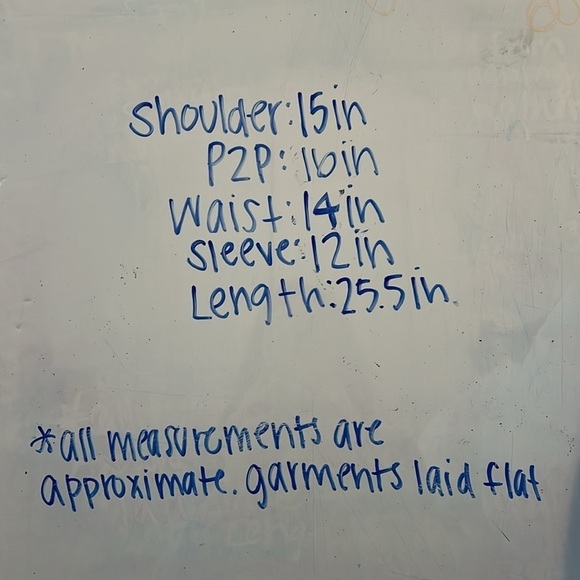 Shoulder: 15in
P2P: 16in
Waist: 14in
Sleeve: 12in
Length: 25.5in
*all measurements are
approximate. garments laid flat